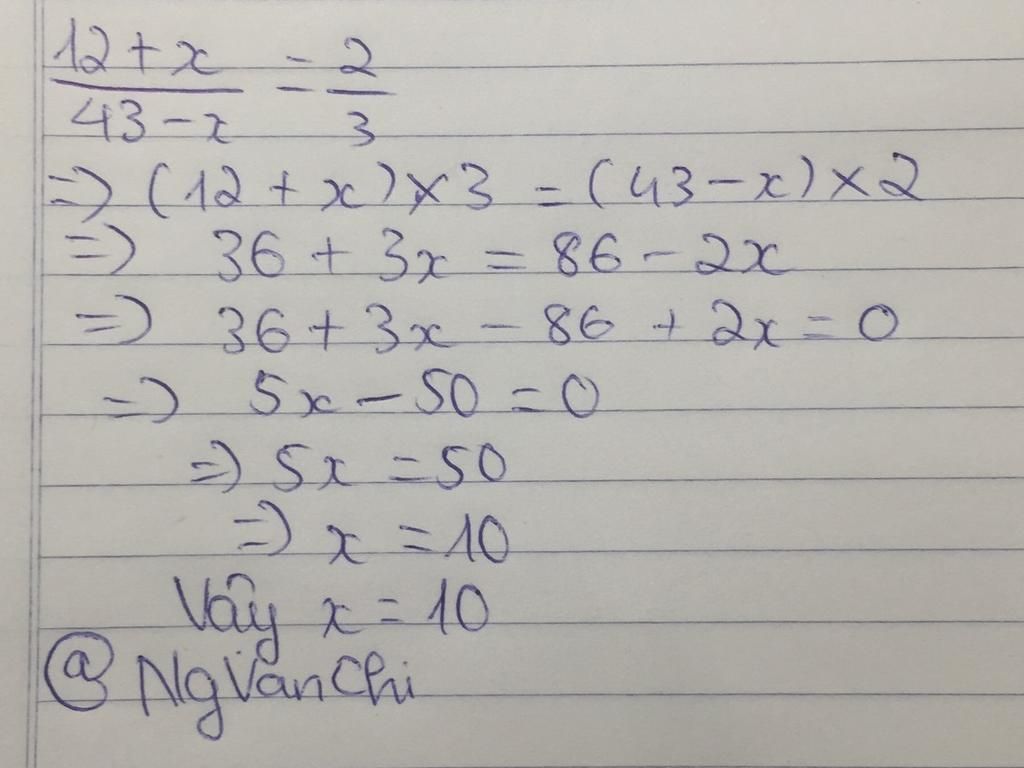 12 + x / 43 - x = 2 / 3
=> (12 + x) × 3 = (43 - x) × 2
=> 36 + 3x = 86 - 2x
=> 36 + 3x - 86 + 2x = 0
=> 5x - 50 = 0
=> 5x = 50
=> x = 10
Vậy x = 10
@NgVanChi